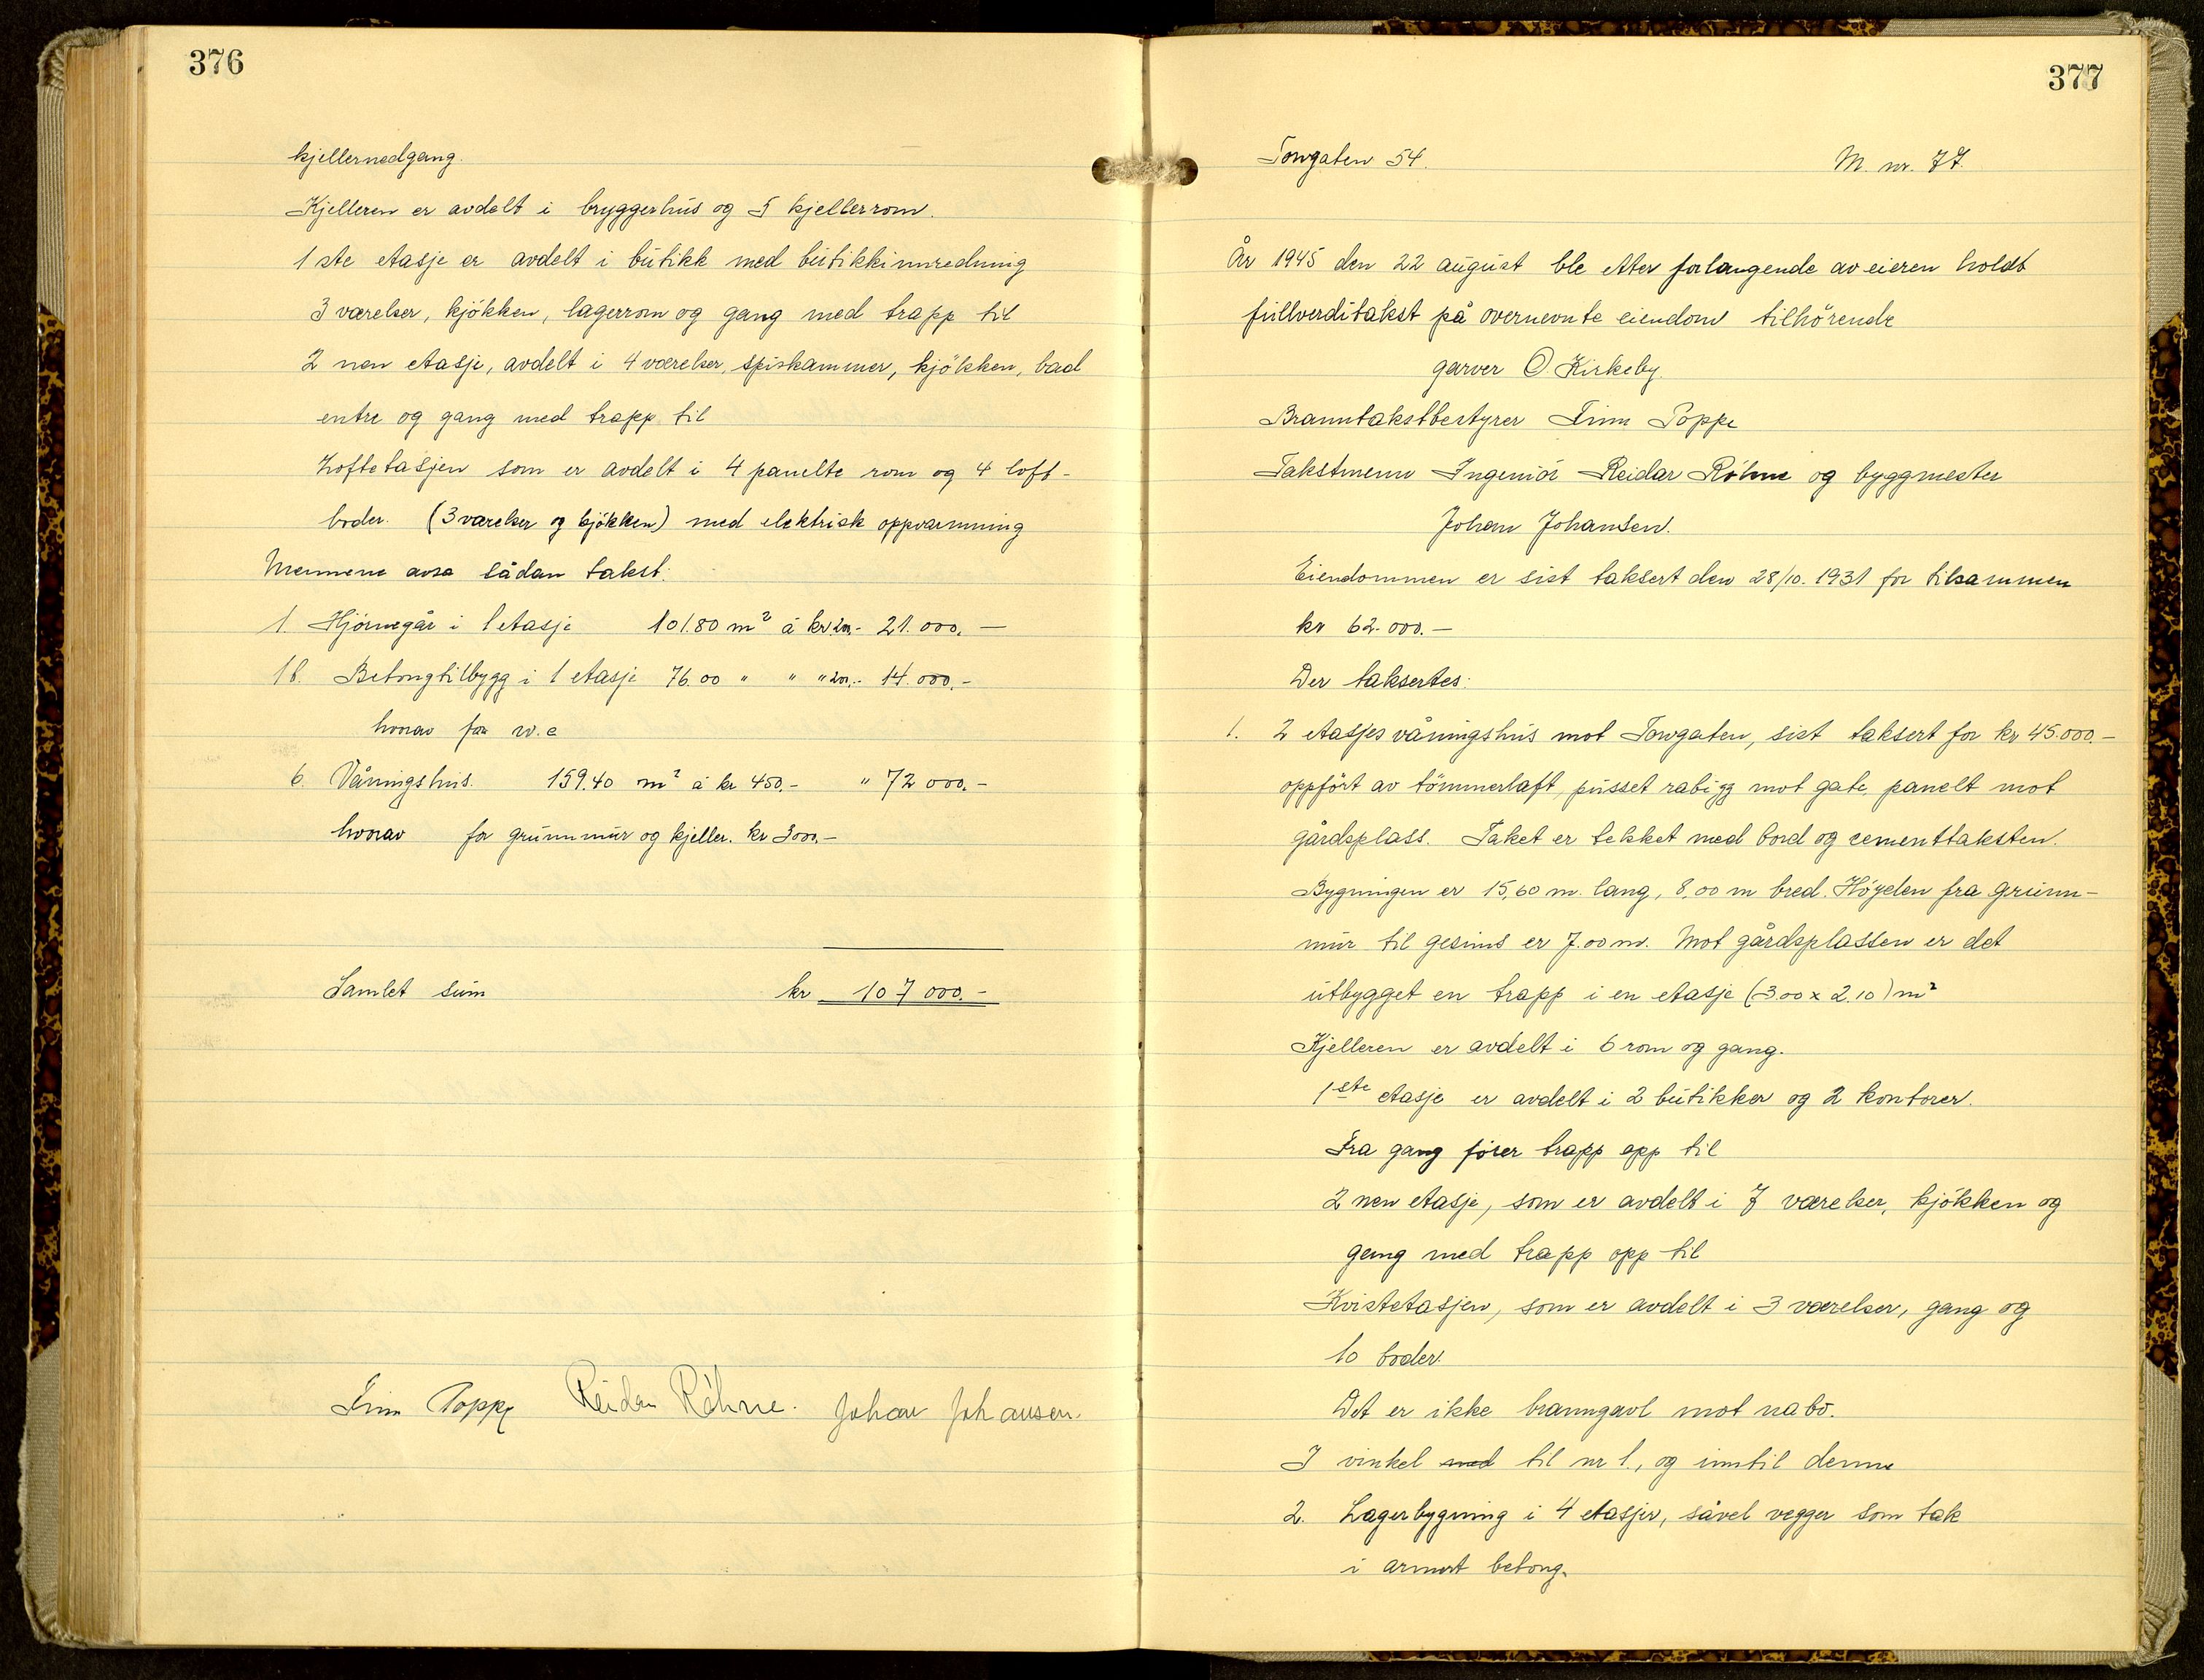 376
kjellernedgang.
Kjelleren er avdelt i bryggerhus og 5 kjellerrom.
1 ste etasje er avdelt i butikk med butikkinnredning
3 værelser, kjökken, lagerrom og gang med trapp til
2 nen etasje, avdelt i 4 værelser, spiskammer, kjökken, bad
entre og gang med trapp til
Loftetasjen som er avdelt i 4 panelte rom og 4 loft-
boder. (3 værelser og kjökken) med elektrisk oppvarmning
Mennene avsa sådan takst:
1. Hjörnegår i 1 etasje 101.80 m² á kr 200,- 21.000,—
1b. Betongtilbygg i 1 etasje 76.00 " " " 200,- 14.000,-
hvorav for w.c
6. Våningshus. 159.40 m² á kr 450,- " 72 000,-
hvorav for grunnmur og kjeller. kr 3000,-
Samlet sum kr 107 000.-
Finn Poppe Reidar Röhne. Johan Johansen.
377
Torvgaten 54. M. nr. 77.
År 1945 den 22 august ble etter forlangende av eieren holdt
fullverditakst på overnevnte eiendom tilhörende
garver O. Kirkeby.
Branntakstbestyrer Finn Poppe
Takstmenn Ingeniör Reidar Röhne og byggmester
Johan Johansen.
Eiendommen er sist taksert den 28/10. 1931 for tilsammen
kr 62.000.—
Der taksertes:
1. 2 etasjes våningshus mot Torvgaten, sist taksert for kr 45.000.-
oppfört av tömmerlaft, pusset rabigg mot gate, panelt mot
gårdsplass. Taket er tekket med bord og cementtaksten.
Bygningen er 15,60 m. lang, 8,00 m bred. Höyden fra grunn-
mur til gesims er 7.00 m. Mot gårdsplassen er det
utbygget en trapp i en etasje (3.00 x 2.10) m²
Kjelleren er avdelt i 6 rom og gang.
1ste etasje er avdelt i 2 butikker og 2 kontorer.
Fra gang förer trapp opp til
2 nen etasje, som er avdelt i 7 værelser, kjökken og
gang med trapp opp til
Kvistetasjen, som er avdelt i 3 værelser, gang og
10 boder.
Det er ikke branngavl mot nabo.
I vinkel med til nr 1., og inntil denne
2. Lagerbygning i 4 etasjer, såvel vegger som tak
i armert betong.